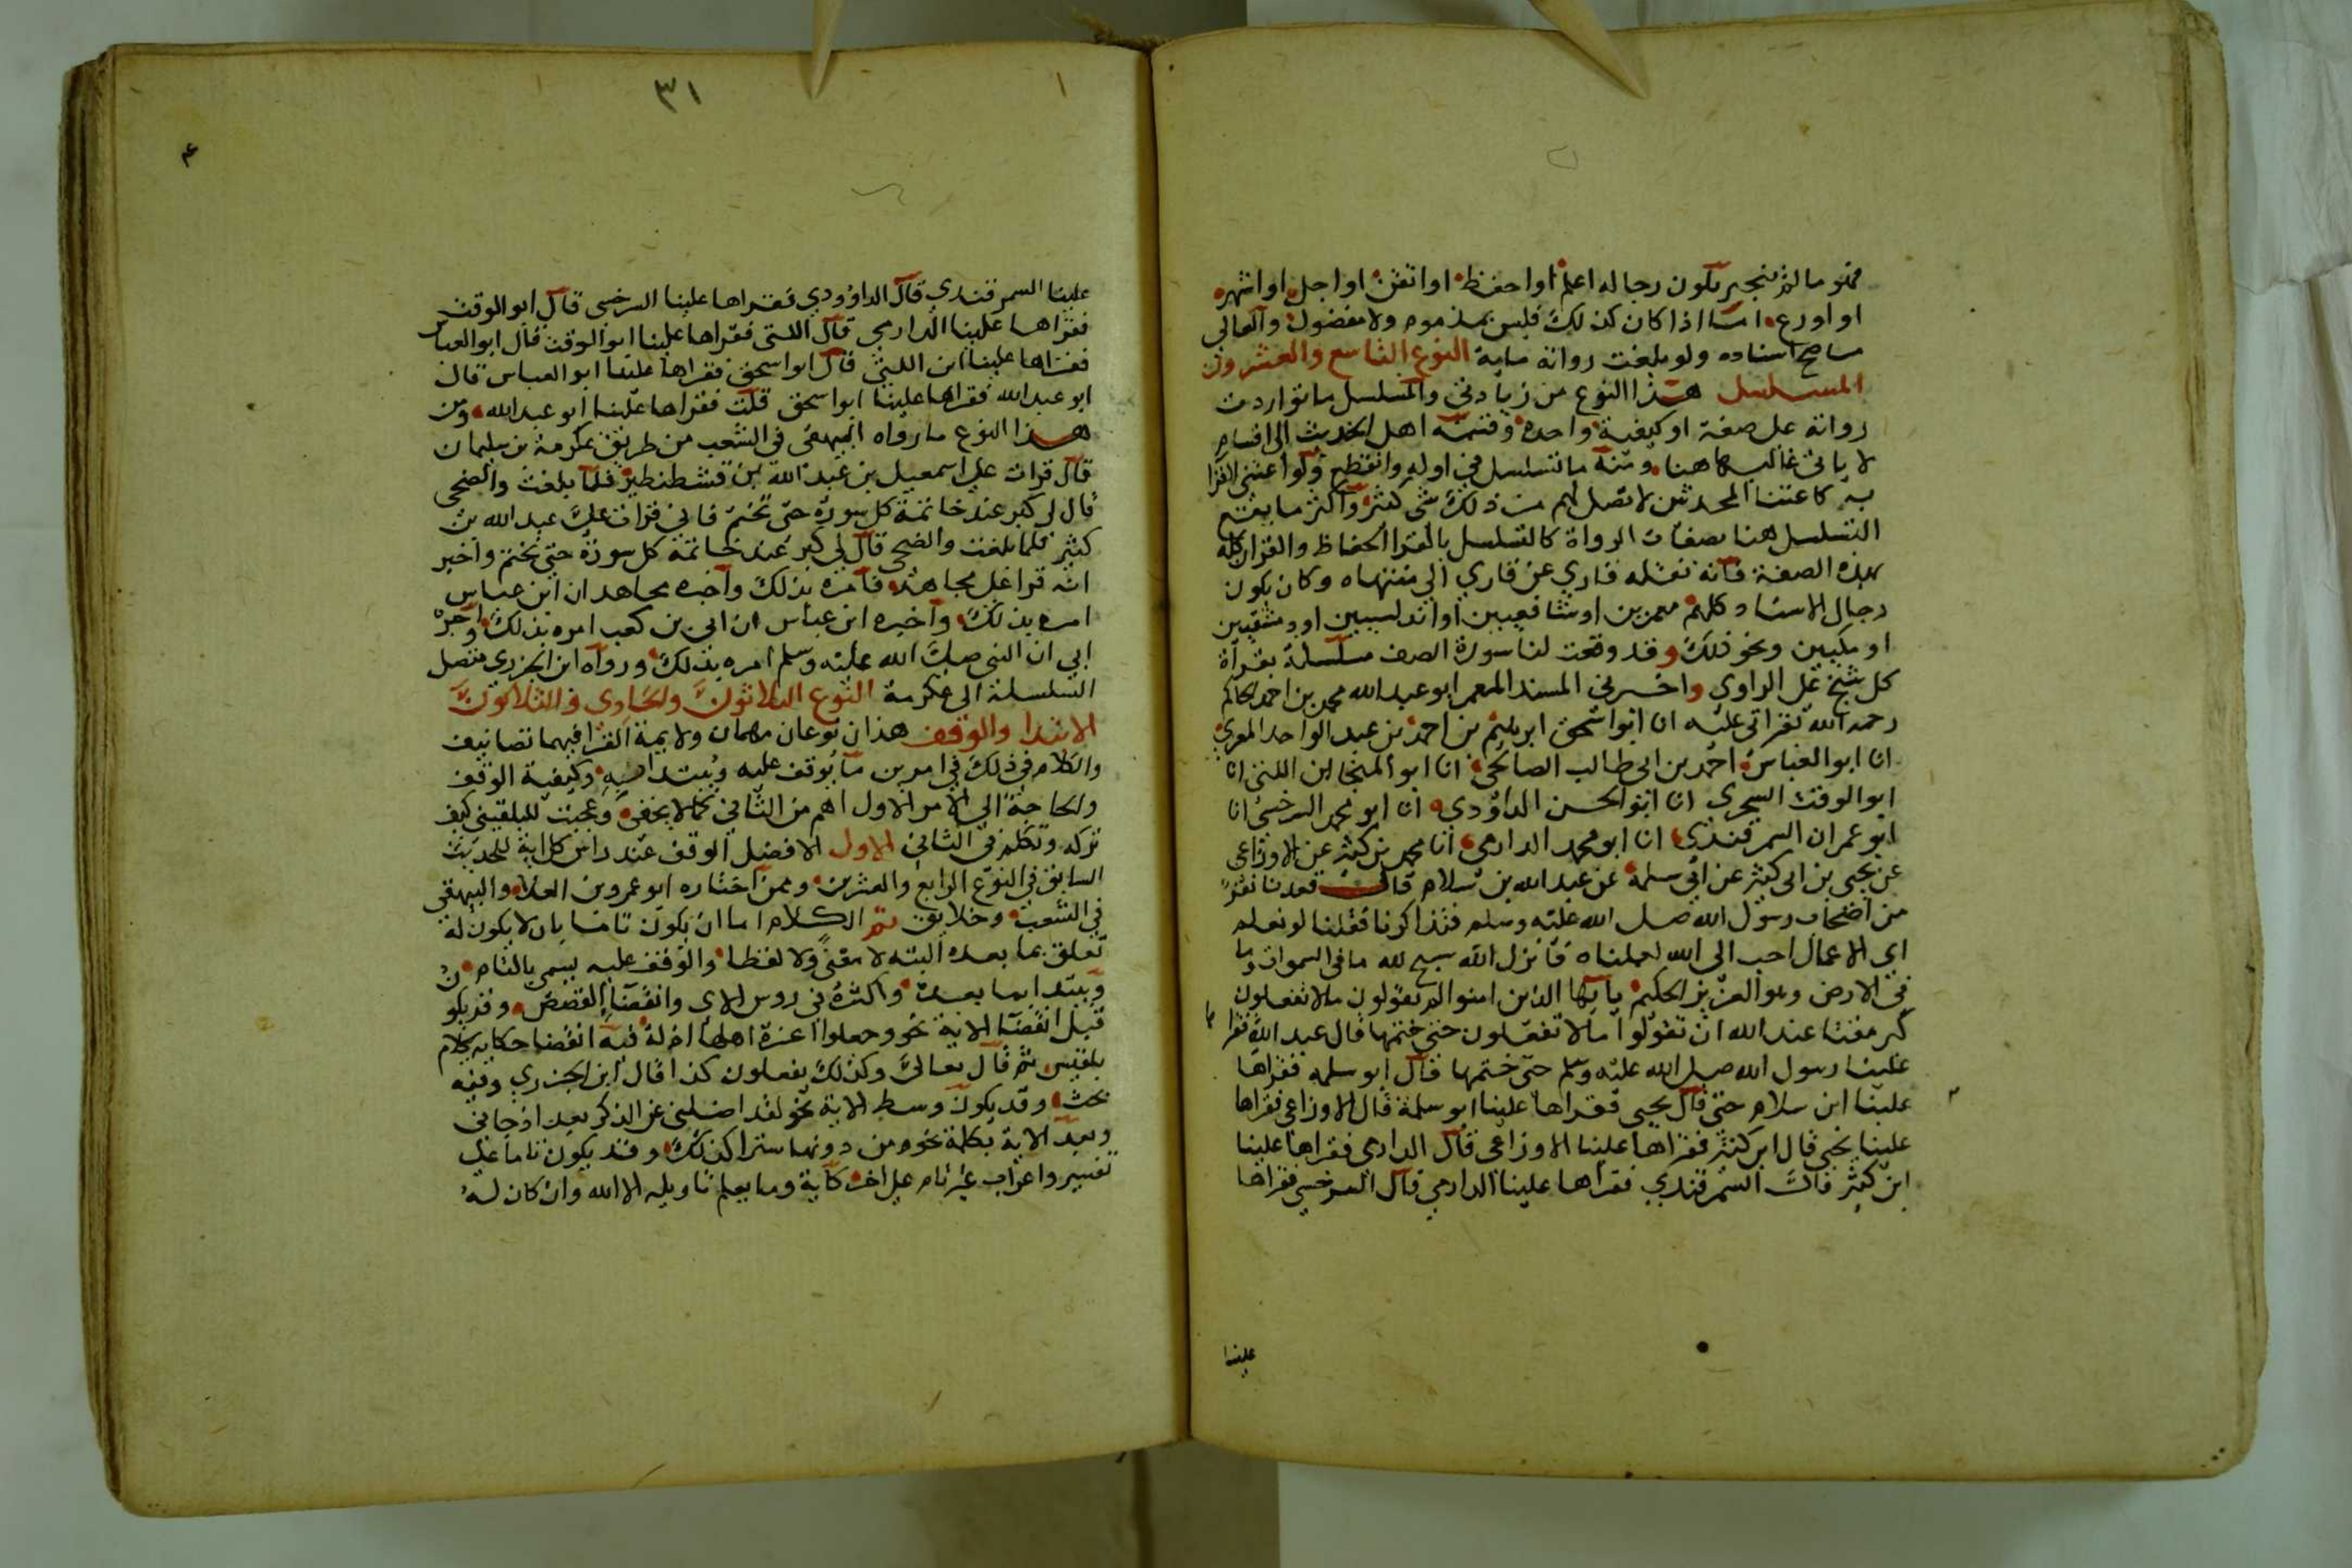 فهو مالم ينجبر بكون رجاله اعلم او احفظ او اتقن او اجل او اشهر
او اورع اما اذا كان كذلك فليس بمذموم ولا مفضول والعالي
ما صح اسناده ولو بلغت رواته ماية النوع التاسع والعشرون
المسلسل هذا النوع من زيادتي والمسلسل ما تواردت
رواته على صفة او كيفية واحدة وقسمه اهل الحديث الى اقسام
لا ياتي غالبها هنا ومنه ما تسلسل في اوله وانقطع ولو اعتنى القرا
به كاعتنا المحدثين لاتصل لهم من ذلك شي كثير واكثر ما يقع
التسلسل هنا بصفات الرواة كالتسلسل بالقرا الحفاظ والقران كله
بهذه الصفة فانه نقله قاري عن قاري الى منتهاه وكان يكون
رجال الاسناد كلهم معمرين او شافعيين او اندلسيين او دمشقيين
او مكيين ونحو ذلك وقد وقعت لنا سورة الصف مسلسلة بقراة
كل شيخ على الراوي واخبرني المسند المعمر ابو عبد الله محمد بن احمد الحاكم
رحمه الله بقراتي عليه انا ابو اسحق ابرهيم بن احمد بن عبد الواحد المعري
انا ابو العباس احمد بن ابي طالب الصالحي انا ابو المنجا ابن اللتي انا
ابو الوقت السجزي انا ابو الحسن الداوودي انا ابو محمد السرخسي انا
ابو عمران السمرقندي انا ابو محمد الدارمي انا محمد بن كثير عن الاوزاعي
عن يحيى بن ابي كثير عن ابي سلمة عن عبد الله بن سلام قال قعدنا نفر
من اصحاب رسول الله صلى الله عليه وسلم فتذاكرنا فقلنا لو نعلم
اي الاعمال احب الى الله لعملناه فانزل الله سبح لله ما في السموات وما
في الارض وهو العزيز الحكيم يا ايها الذين امنوا لم تقولون مالا تفعلون
كبر مقتا عند الله ان تقولوا مالا تفعلون حتى ختمها قال عبد الله فقراها
علينا رسول الله صلى الله عليه وسلم حتى ختمها قال ابو سلمه فقراها
علينا ابن سلام حتى قال يحيى فقراها علينا ابو سلمة قال الاوزاعي فقراها
علينا يحيى قال ابن كثير فقراها علينا الاوزاعي قال الدارمي فقراها علينا
ابن كثير قال السمرقندي فقراها علينا الدارمي قال السرخسي فقراها
علينا
٣١
علينا السمرقندي قال الداوودي فقراها علينا السرخسي قال ابو الوقت
فقراها علينا الدارمي قال اللتي فقراها علينا ابو الوقت قال ابو العباس
فقراها علينا ابن اللتي قال ابو اسحق فقراها علينا ابو العباس قال
ابو عبد الله فقراها علينا ابو اسحق قلت فقراها علينا ابو عبد الله ومن
هذا النوع ما رواه البيهقي في الشعب من طريق عكرمة بن سليمان
قال قرات على اسمعيل بن عبد الله بن قسطنطين فلما بلغت والضحى
قال لي كبر عند خاتمة كل سورة حتى تختم فاني قرات على عبد الله بن
كثير فلما بلغت والضحى قال لي كبر عند خاتمة كل سورة حتى تختم واخبر
انه قرا على مجاهد فامره بذلك واخبره مجاهد ان ابن عباس
امره بذلك واخبره ابن عباس ان ابي بن كعب امره بذلك واخبره
ابي ان النبي صلى الله عليه وسلم امره بذلك ورواه ابن الجزري متصل
السلسلة الى عكرمة النوع الثلاثون والحادي والثلاثون
الابتدا والوقف هذان نوعان مهمان ولايمة القرا فيهما تصانيف
والكلام في ذلك في امرين ما يوقف عليه ويبتدا به وكيفية الوقف
والحاجة الى الامر الاول اهم من الثاني كما لا يخفى وعجبت للبلقيني كيف
تركه وتكلم في الثاني الاول الافضل الوقف عند راس كل اية للحديث
السابق في النوع الرابع والعشرين وممن اختاره ابو عمرو بن العلا والبيهقي
في الشعب وخلايق ثم الكلام اما ان يكون تاما بان لا يكون له
تعلق بما بعده البته لا معنى ولا لفظا والوقف عليه يسمى بالتام
ويبتدا بما بعده واكثره في روس الاي وانقضا القصص وقد يكون
قبل انقضا الاية نحو وجعلوا اعزة اهلها اذلة فيه انقضا حكاية كلام
بلقيس ثم قال تعالى وكذلك يفعلون كذا قال ابن الجزري وفيه
بحث وقد يكون وسط الاية نحو لقد اضلني عن الذكر بعد اذ جاني
وبعد الاية بكلمة نحو من دونها سترا كذلك وقد يكون تاما على
تفسير واعراب غير تام على اخر كاية وما يعلم تاويله الا الله وان كان له